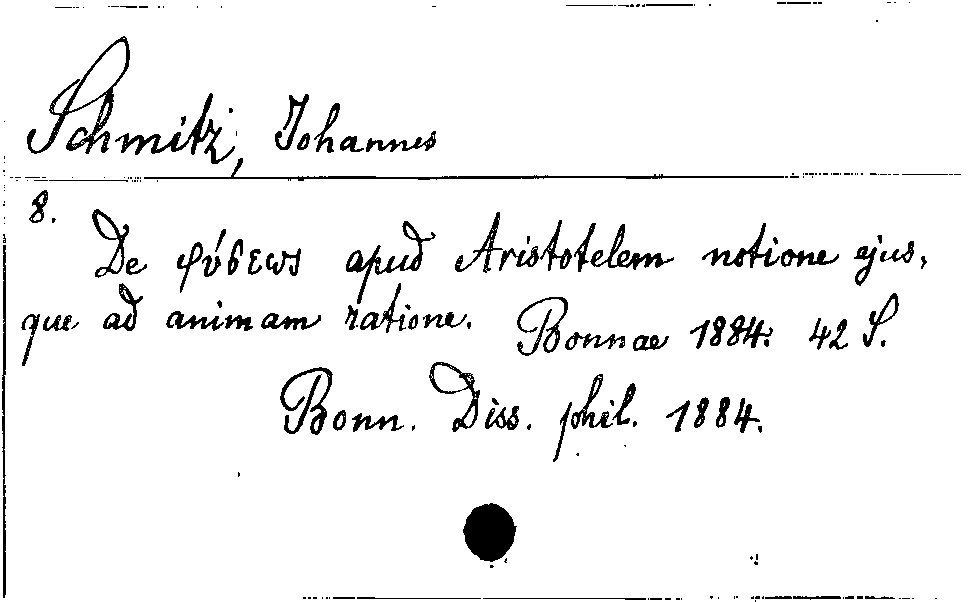 Schmitz, Johannes
8.
De φύσεως apud Aristotelem notione ejus,
que ad animam ratione. Bonnae 1884. 42 S.
Bonn. Diss. phil. 1884.